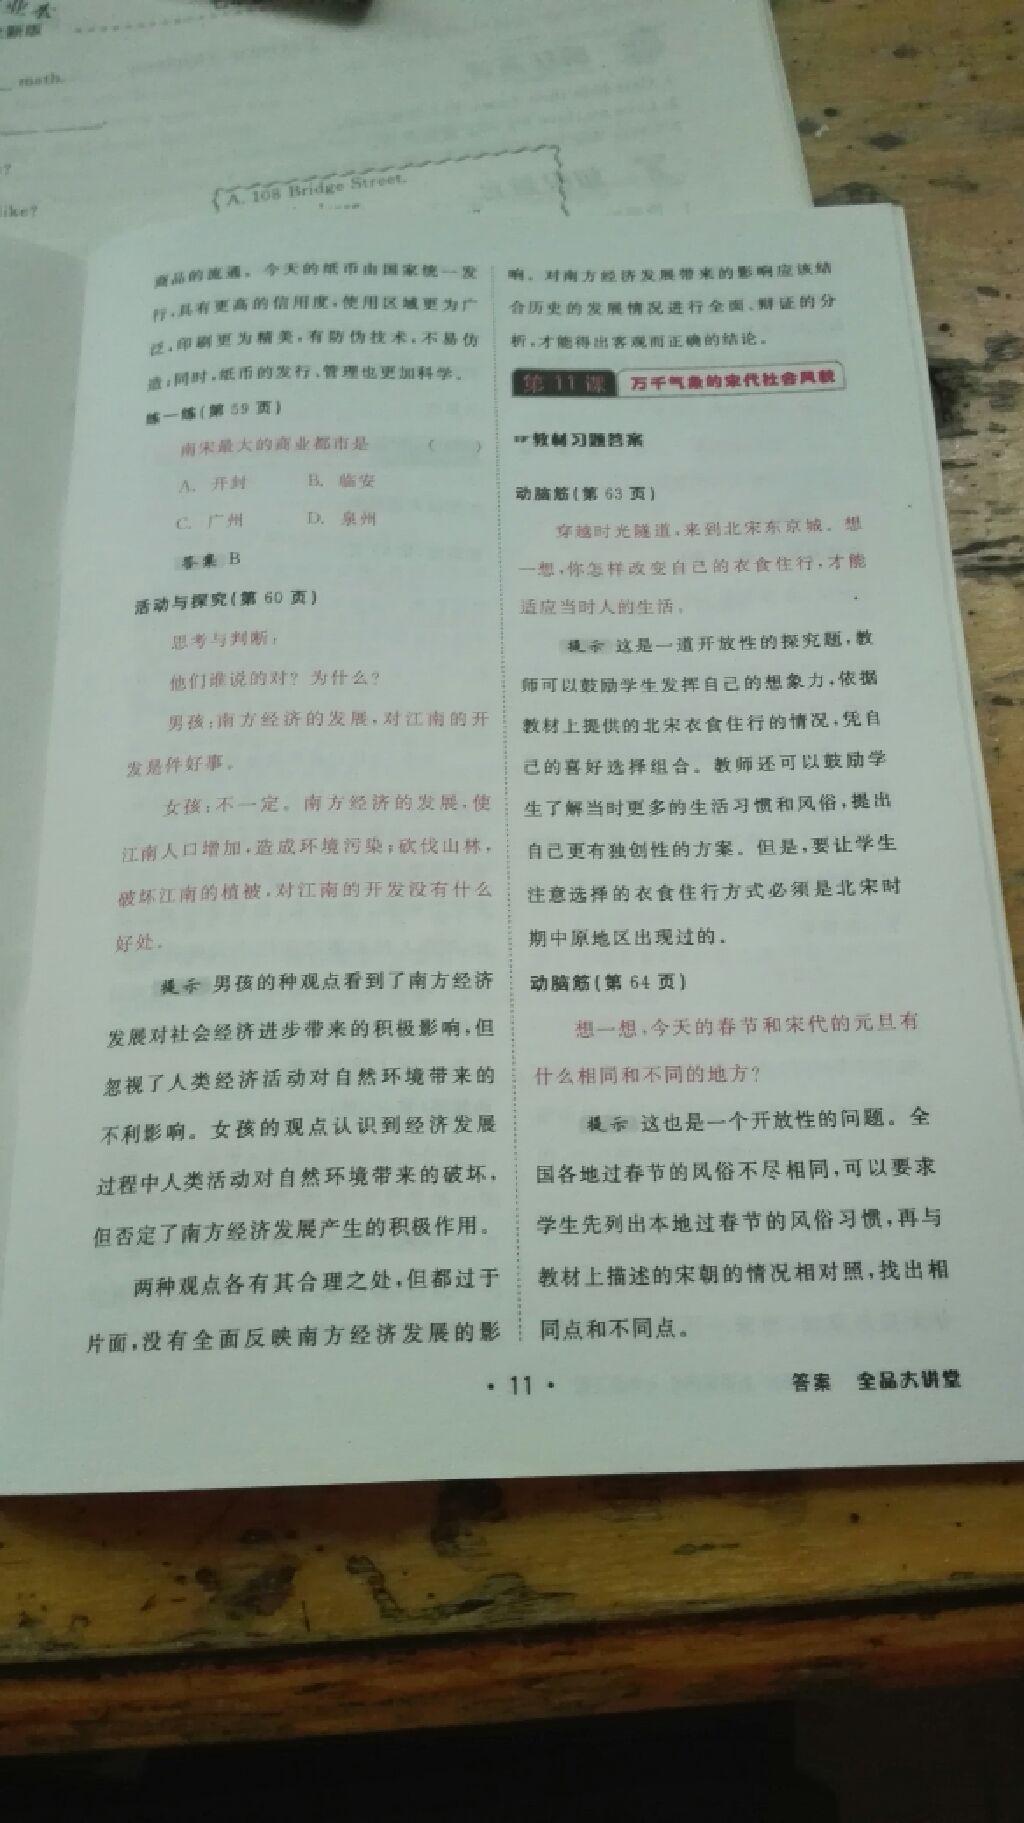 math.
like?
A. 108 Bridge Street.
商品的流通。今天的纸币由国家统一发
行,具有更高的信用度,使用区域更为广
泛,印刷更为精美,有防伪技术,不易仿
造;同时,纸币的发行、管理也更加科学。
练一练(第 59 页)
南宋最大的商业都市是 ( )
A. 开封 B. 临安
C. 广州 D. 泉州
答案 B
活动与探究(第 60 页)
思考与判断:
他们谁说的对?为什么?
男孩:南方经济的发展,对江南的开
发是件好事。
女孩:不一定。南方经济的发展,使
江南人口增加,造成环境污染;砍伐山林,
破坏江南的植被,对江南的开发没有什么
好处。
提示 男孩的种观点看到了南方经济
发展对社会经济进步带来的积极影响,但
忽视了人类经济活动对自然环境带来的
不利影响。女孩的观点认识到经济发展
过程中人类活动对自然环境带来的破坏,
但否定了南方经济发展产生的积极作用。
两种观点各有其合理之处,但都过于
片面,没有全面反映南方经济发展的影
响。对南方经济发展带来的影响应该结
合历史的发展情况进行全面、辩证的分
析,才能得出客观而正确的结论。
第 11 课 万千气象的宋代社会风貌
☞教材习题答案
动脑筋(第 63 页)
穿越时光隧道,来到北宋东京城。想
一想,你怎样改变自己的衣食住行,才能
适应当时人的生活。
提示 这是一道开放性的探究题,教
师可以鼓励学生发挥自己的想象力,依据
教材上提供的北宋衣食住行的情况,凭自
己的喜好选择组合。教师还可以鼓励学
生了解当时更多的生活习惯和风俗,提出
自己更有独创性的方案。但是,要让学生
注意选择的衣食住行方式必须是北宋时
期中原地区出现过的。
动脑筋(第 64 页)
想一想,今天的春节和宋代的元旦有
什么相同和不同的地方?
提示 这也是一个开放性的问题。全
国各地过春节的风俗不尽相同,可以要求
学生先列出本地过春节的风俗习惯,再与
教材上描述的宋朝的情况相对照,找出相
同点和不同点。
• 11 •
答案 全品大讲堂